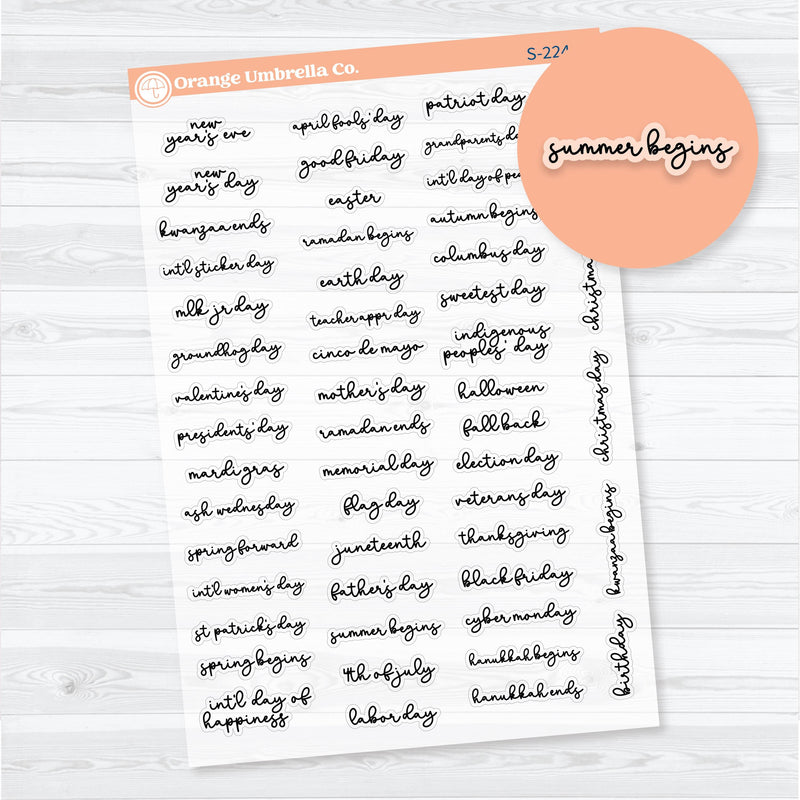 Orange Umbrella Co.
S-224
summer begins
new
year's eve
new
year's day
kwanzaa ends
int'l sticker day
mlk jr day
groundhog day
valentine's day
presidents' day
mardi gras
ash wednesday
spring forward
int'l women's day
st patrick's day
spring begins
int'l day of
happiness
april fools' day
good friday
easter
ramadan begins
earth day
teacher appr day
cinco de mayo
mother's day
ramadan ends
memorial day
flag day
juneteenth
father's day
summer begins
4th of july
labor day
patriot day
grandparents
int'l day of
autumn begins
columbus day
sweetest day
indigenous
peoples' day
halloween
fall back
election day
veterans day
thanksgiving
black friday
cyber monday
hanukkah begins
hanukkah ends
christmas
christmas day
kwanzaa begins
birthday